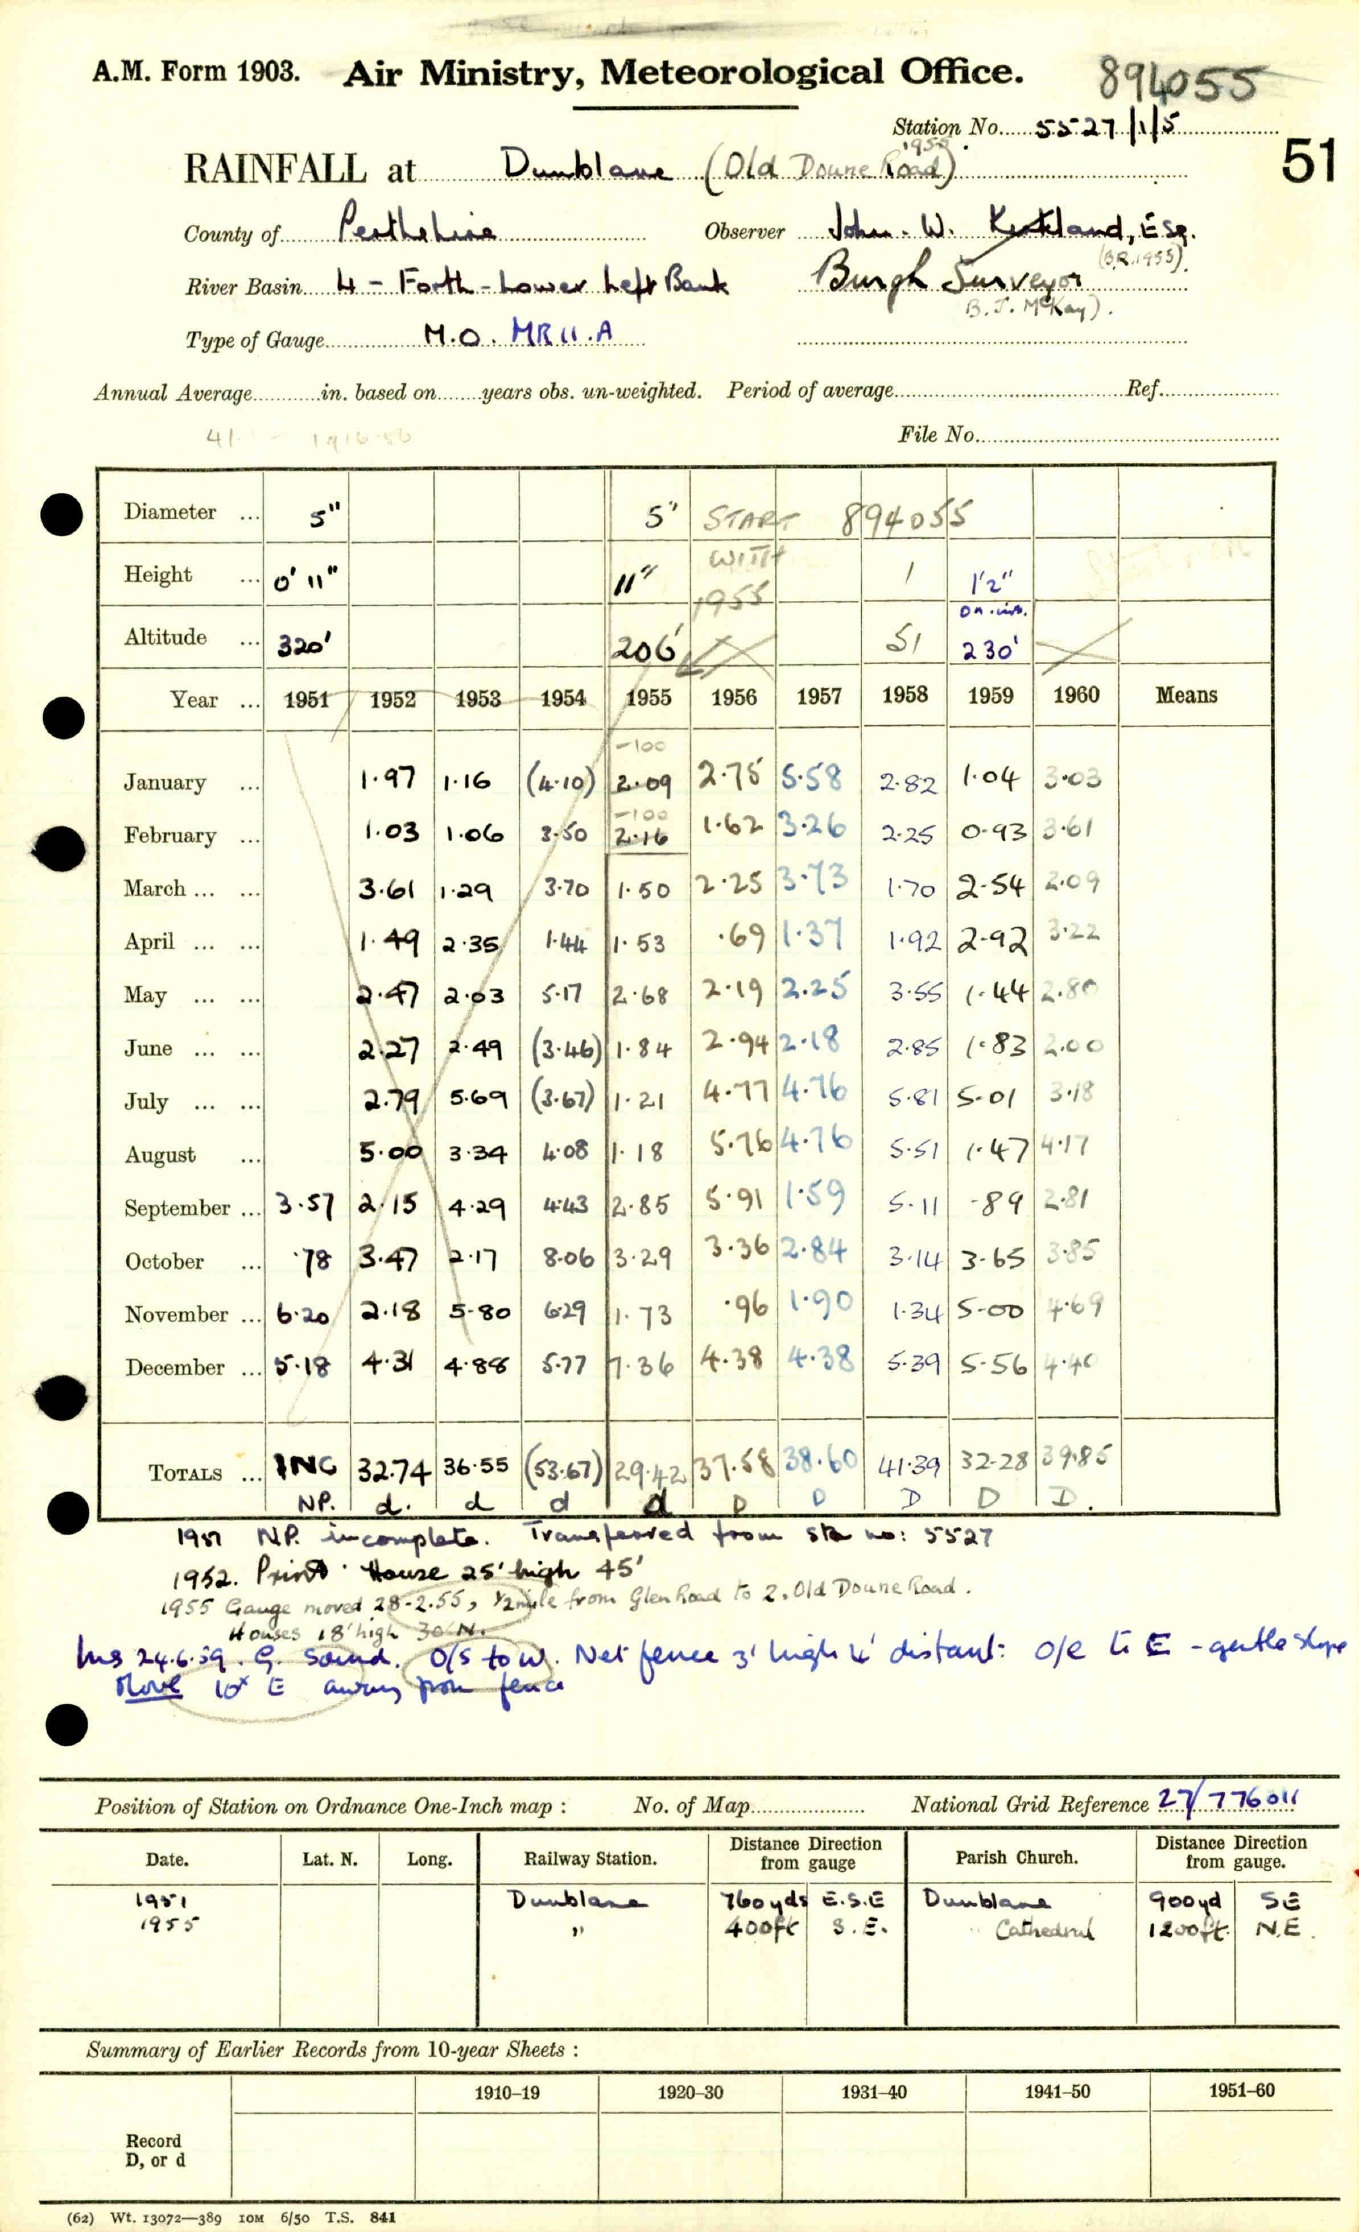 A.M. Form 1903. Air Ministry, Meteorological Office. 894055
Station No. 5527/1/5
51
1955
RAINFALL at Dunblane (Old Doune Road)
County of Perthshire Observer John. W. Kirkland, Esq.
(B.R. 1955)
River Basin 4 - Forth - Lower Left Bank Burgh Surveyor
B. J. McKay).
Type of Gauge M.O. MR 11.A
Annual Average in. based on years obs. un-weighted. Period of average Ref.
41. 1916-50 File No.
Diameter ... 5" 5" START 894055
Height ... 0' 11" 11" WITH 1 1'2"
1955 on ins.
Altitude ... 320' 206' 51 230'
Year ... 1951 1952 1953 1954 1955 1956 1957 1958 1959 1960 Means
-100
January ... 1.97 1.16 (4.10) 2.09 2.75 5.58 2.82 1.04 3.03
-100
February ... 1.03 1.06 3.50 2.16 1.62 3.26 2.25 0.93 3.61
March ... ... 3.61 1.29 3.70 1.50 2.25 3.73 1.70 2.54 2.09
April ... ... 1.49 2.35 1.44 1.53 .69 1.37 1.92 2.92 3.22
May ... ... 2.47 2.03 5.17 2.68 2.19 2.25 3.55 1.44 2.80
June ... ... 2.27 2.49 (3.46) 1.84 2.94 2.18 2.85 1.83 2.00
July ... ... 2.79 5.69 (3.67) 1.21 4.77 4.76 5.81 5.01 3.18
August ... 5.00 3.34 4.08 1.18 5.76 4.76 5.51 1.47 4.17
September ... 3.57 2.15 4.29 4.43 2.85 5.91 1.59 5.11 .89 2.81
October ... .78 3.47 2.17 8.06 3.29 3.36 2.84 3.14 3.65 3.85
November ... 6.20 2.18 5.80 6.29 1.73 .96 1.90 1.34 5.00 4.69
December ... 5.18 4.31 4.88 5.77 7.36 4.38 4.38 5.39 5.56 4.40
TOTALS ... INC 32.74 36.55 (53.67) 29.42 37.58 38.60 41.39 32.28 39.85
NP. d. d d d D D D D D.
1951 N.P. incomplete. Transferred from sta no: 5527
1952. Print. House 25' high 45'
1955 Gauge moved 28-2.55, 1/2 mile from Glen Road to 2, Old Doune Road.
Houses 18' high 30' N.
Ins 24.6.59. G. sound. O/S to W. Net fence 3' high 4' distant: O/e to E - gentle slope
Move 10x E away from fence
Position of Station on Ordnance One-Inch map : No. of Map National Grid Reference 27/776011
Date. Lat. N. Long. Railway Station. Distance Direction from gauge Parish Church. Distance Direction from gauge.
1951 Dunblane 760yds E.S.E Dunblane 900yd SE
1955 " 400ft S.E. " Cathedral 1200ft. N.E.
Summary of Earlier Records from 10-year Sheets :
1910–19 1920–30 1931–40 1941–50 1951–60
Record
D, or d
(62) Wt. 13072—389 10M 6/50 T.S. 841